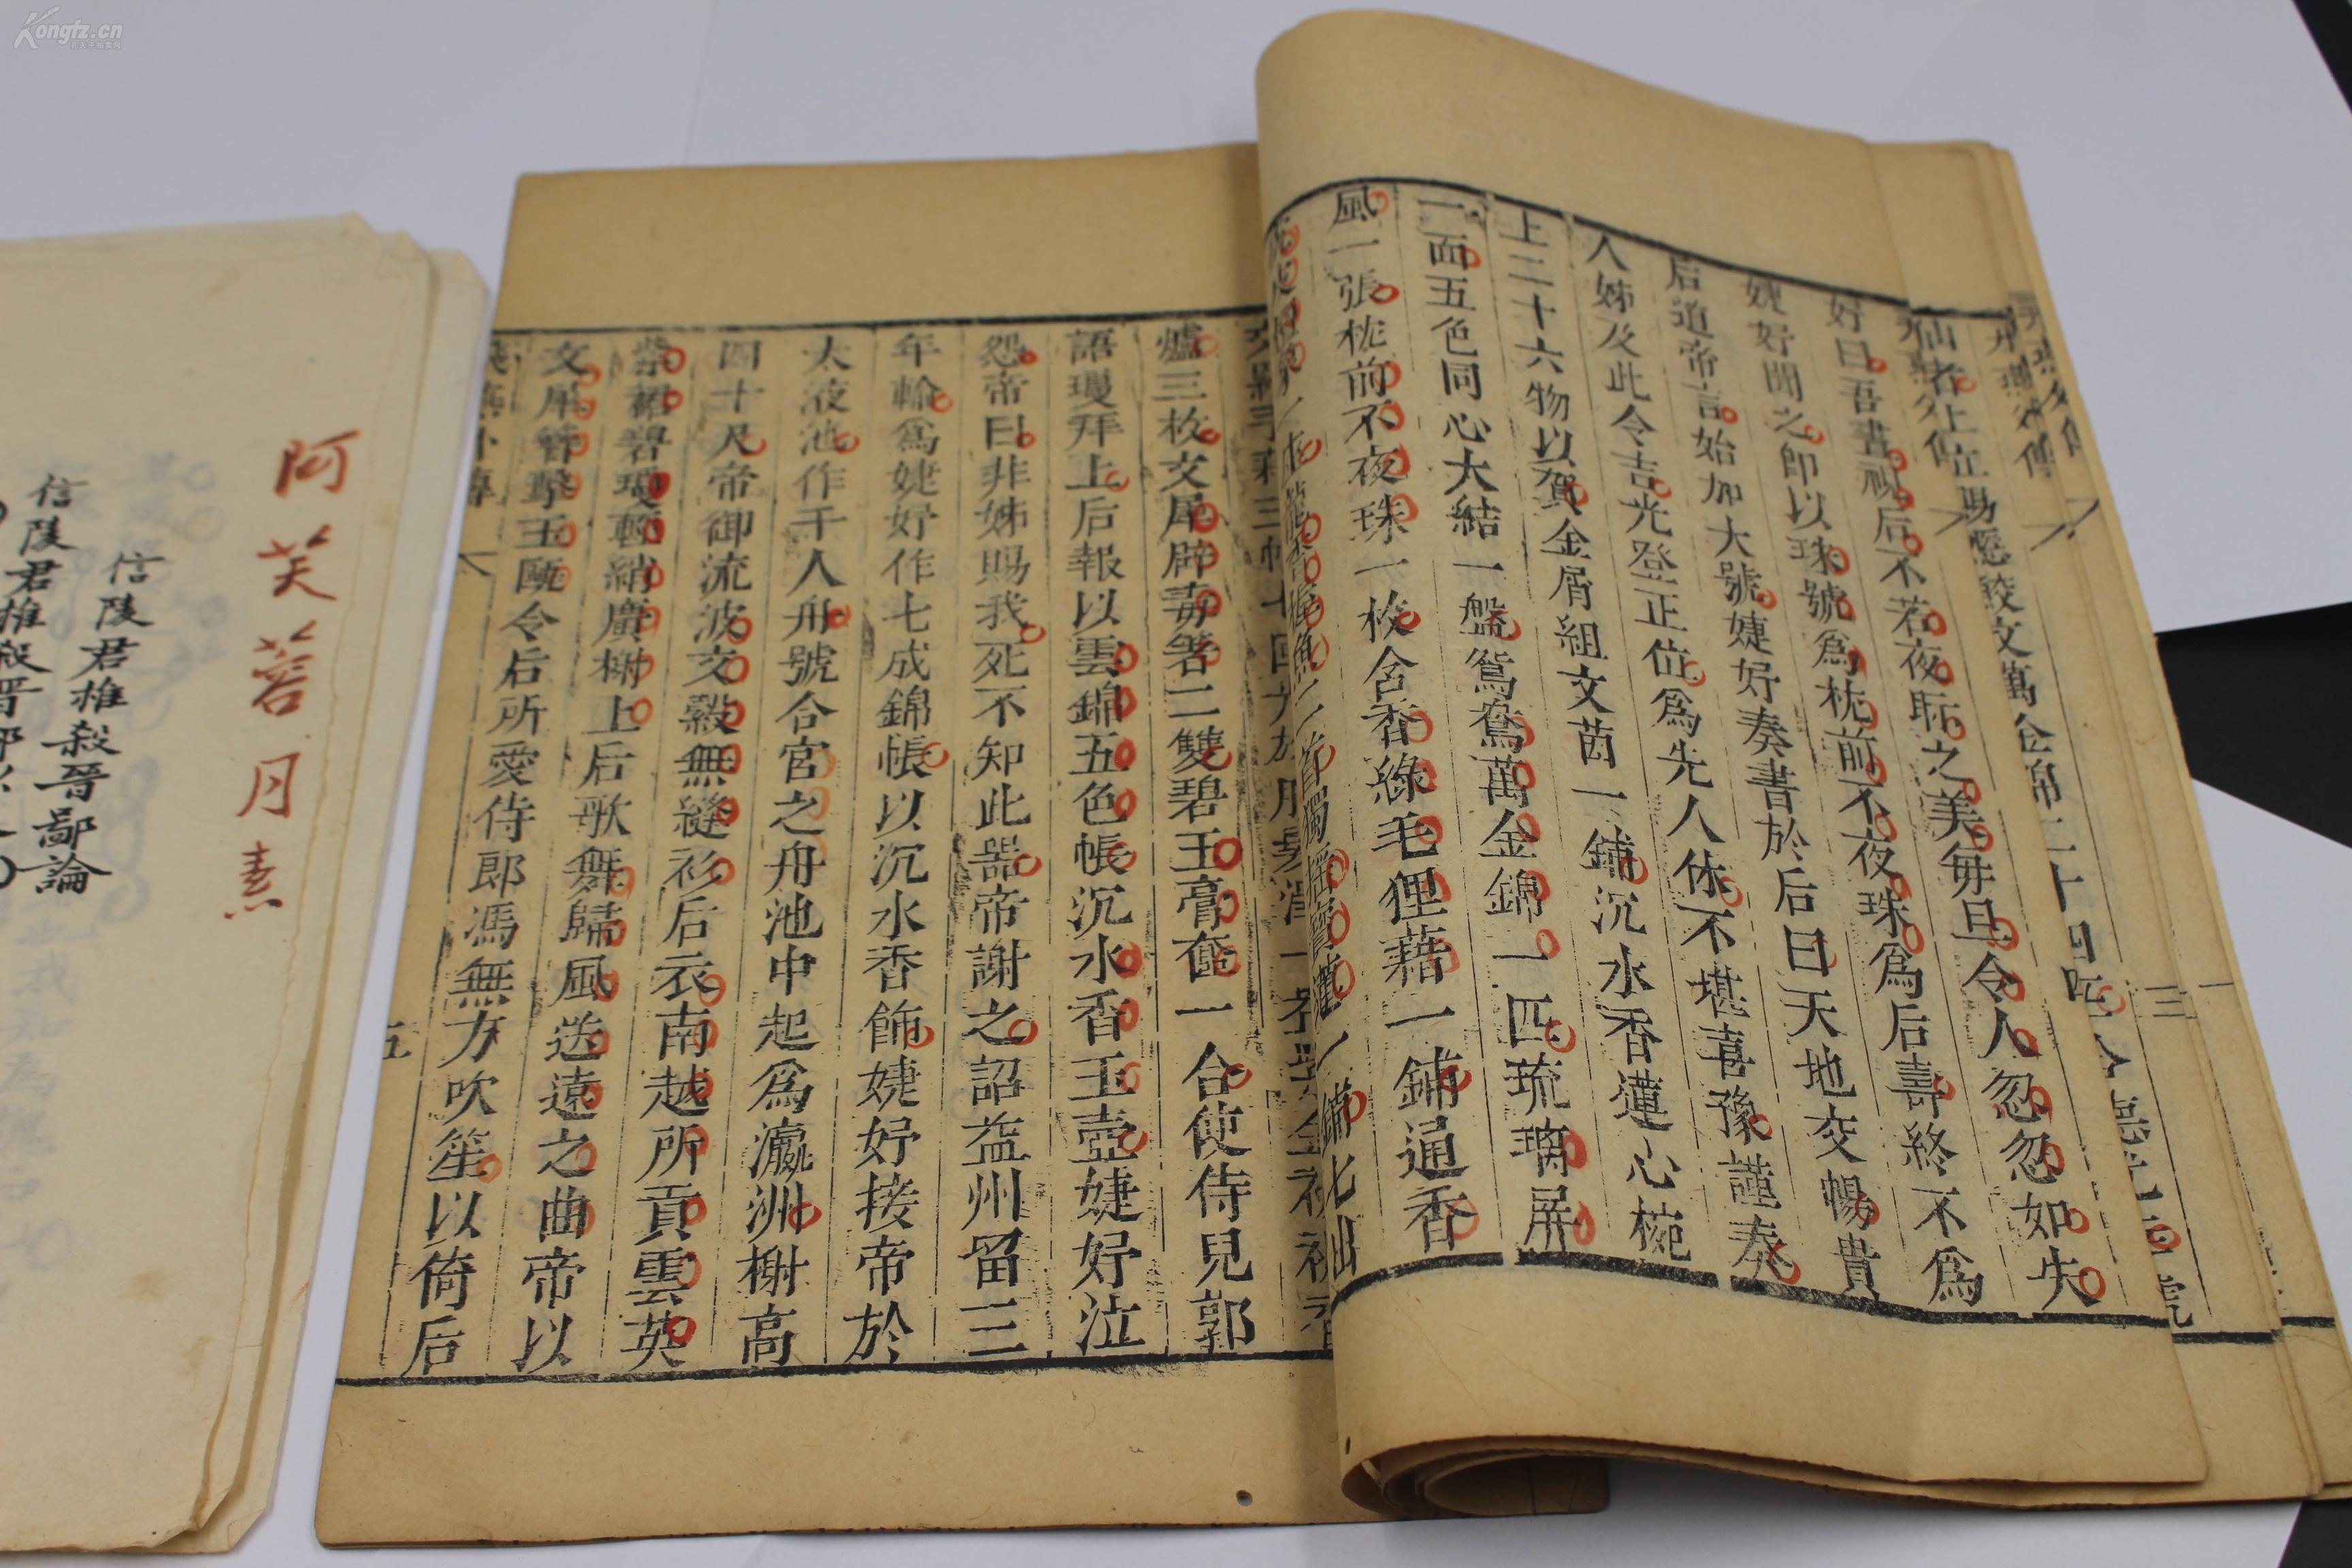 仙者上立賜鮫文萬金錦二十四疋
好曰吾晝視后不若夜眎之美毎旦令人忽忽如失
婕妤聞之即以珠號為枕前不夜珠為后壽終不為
后道帝言始加大號婕妤奏書於后曰天地交暢貴
人姊及此令吉光登正位為先人休不堪喜豫謹奏
上二十六物以賀金屑組文茵一鋪沉水香蓮心椀
一面五色同心大結一盤鴛鴦萬金錦一匹琉璃屏
風一張枕前不夜珠一枚含香綠毛狸藉一鋪通香
爐三枚文犀辟毒箸二雙碧玉膏奩一合使侍兒郭
語瓊拜上后報以雲錦五色帳沉水香玉壺婕妤泣
怨帝曰非姊賜我死不知此器帝謝之詔益州留三
年輸為婕妤作七成錦帳以沉水香飾婕妤接帝於
太液池作千人舟號合宮之舟池中起為瀛洲榭高
四十尺帝御流波文縠無縫衫后衣南越所貢雲英
紫裙碧瓊輕綃廣榭上后歌舞歸風送遠之曲帝以
文犀簪擊玉甌令后所愛侍郎馮無方吹笙以倚后
五
阿芙蓉月素
信陵君椎殺晉鄙論
信陵君椎殺晉鄙
Kongfz.cn